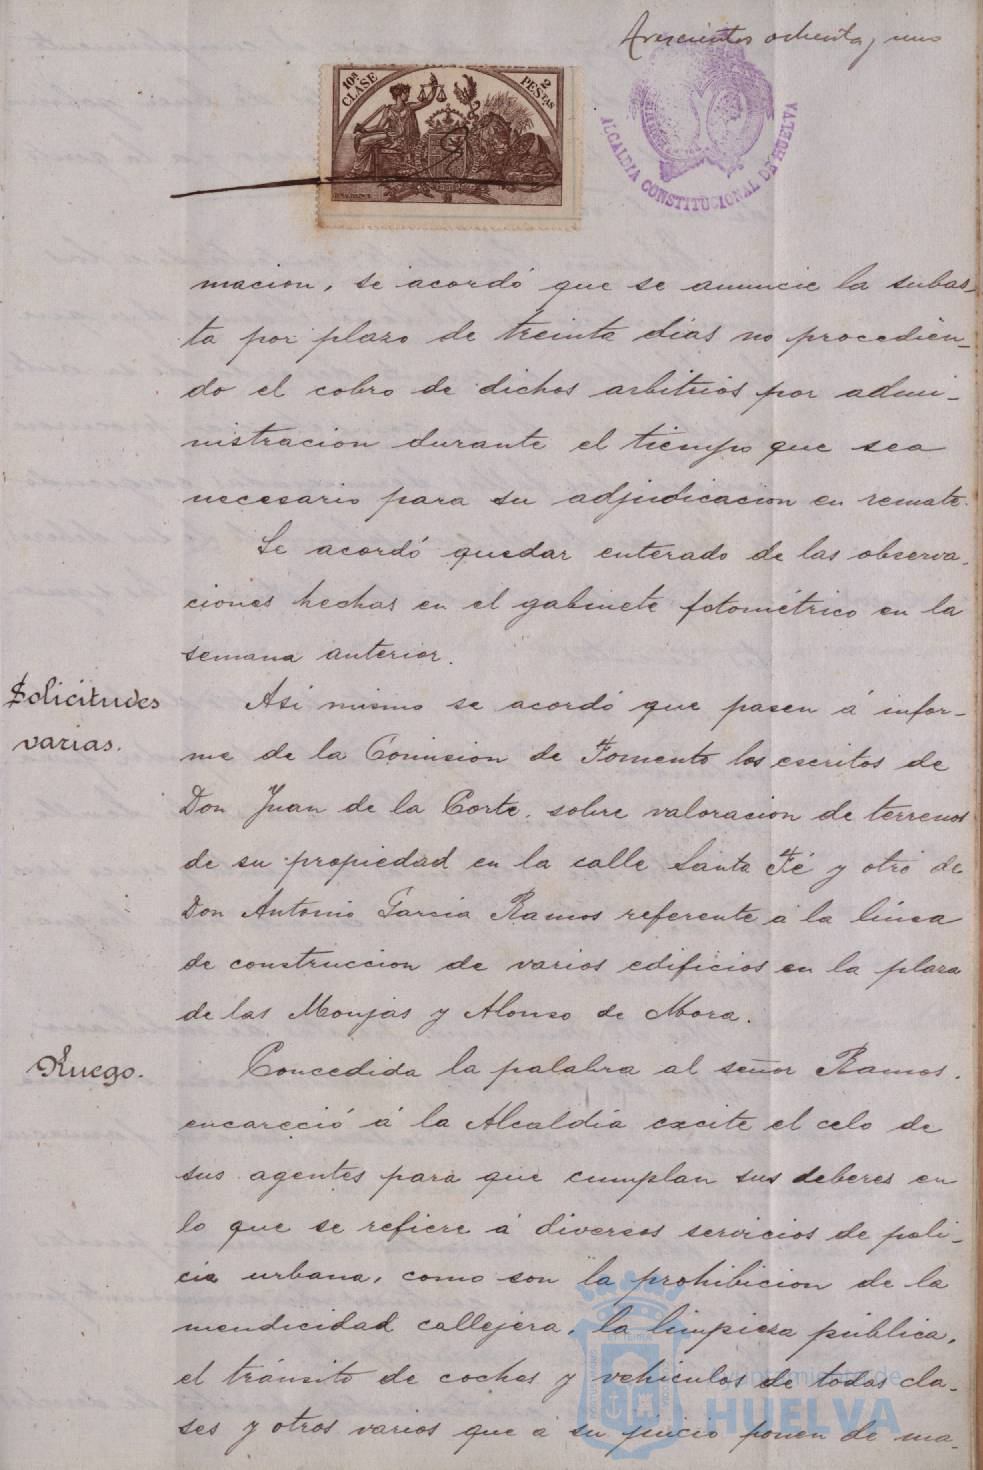 Trescientos ochenta y uno
10ª CLASE
2 PESTAS
ALCALDIA CONSTITUCIONAL DE HUELVA
macion, se acordó que se anuncie la subas-
ta por plazo de treinta dias no procedién-
do el cobro de dichos arbitrios por admi-
nistracion durante el tiempo que sea
necesario para su adjudicacion en remate.
Se acordó quedar enterado de las observa-
ciones hechas en el gabinete fotométrico en la
semana anterior.
Solicitudes
varias.
Asi mismo se acordó que pasen á infor-
me de la Comision de Fomento los escritos de
Don Juan de la Corte, sobre valoracion de terrenos
de su propiedad en la calle Santa Fé y otro de
Don Antonio Garcia Ramos referente á la línea
de construccion de varios edificios en la plaza
de las Monjas y Alonso de Mora.
Ruego.
Concedida la palabra al señor Ramos,
encareció á la Alcaldía excite el celo de
sus agentes para que cumplan sus deberes en
lo que se refiere á diversos servicios de poli-
cia urbana, como son la prohibicion de la
mendicidad callejera, la limpieza pública,
el tránsito de coches y vehículos de todas cla-
ses y otros varios que á su juicio ponen de ma-
Ayuntamiento de
HUELVA